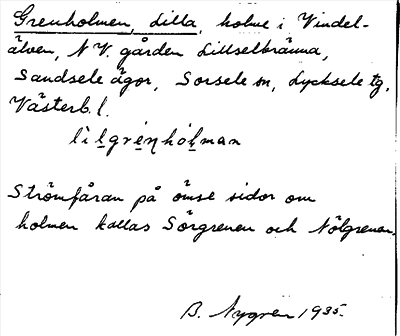 Grenholmen, Lilla, holme i Vindel-
älven, N.V. gården Lillselbränna,
Sandsele ägor, Sorsele sn, Lycksele tg,
Västerb. l.
Strömfåran på ömse sidor om
holmen kallas Sörgrenen och Nölgrenen.
B. Nygren 1935.